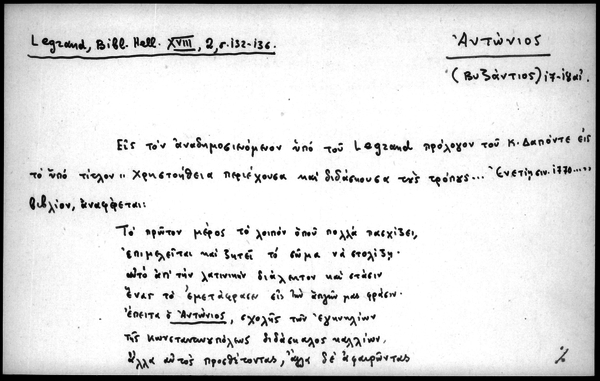 Legrand, Bibl. Hell. XVIII, 2, σ. 132-136.
Ἀντώνιος
(Βυζάντιος) 17-18 αἰ.
Εἰς τὸν ἀναδημοσιευόμενον ὑπὸ τοῦ Legrand πρόλογον τοῦ Κ. Δαπόντε εἰς
τὸ ὑπὸ τίτλον „ Χρηστοήθεια περιέχουσα καὶ διδάσκουσα τοὺς τρόπους... Ἐνετίησιν. 1770....."
βιβλίον, ἀναφέρεται:
Τὸ πρῶτον μέρος τὸ λοιπὸν ὁποῦ πολλὰ πασχίζει,
ἐπιμελεῖται καὶ ζητεῖ τὸ σῶμα νὰ στολίζῃ·
αὐτὸ ἀπ' τὴν λατινικὴν διάλεκτον καὶ στάσιν
ἕνας τὸ ἐμετάφρασε εἰς τὴν ἁπλῆν μας φράσιν·
ἔπειτα ὁ Ἀντώνιος, σχολῆς τῶν
τῆς Κωνσταντινουπόλεως διδάσκαλος καλλίων,
ἄλλα αὐτὸς προσθέτοντας, ἄλλα δὲ ἀφαιρῶντας